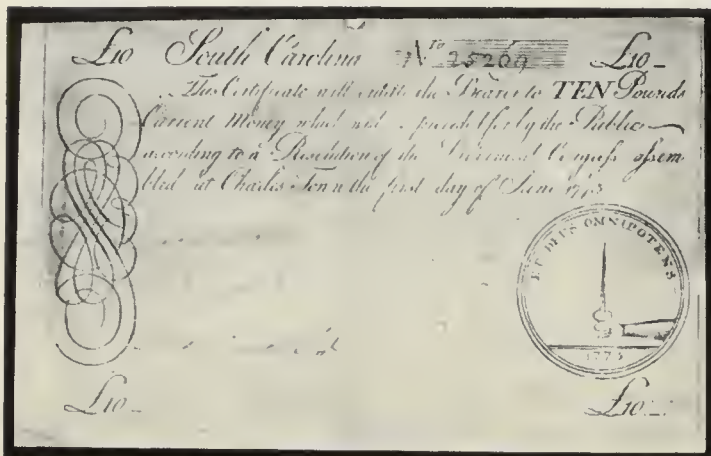 £10 South Carolina No 25209 £10
This Certificate will entitle the Bearer to TEN Pounds
Current Money which will be provided for by the Public
according to a Resolution of the Provincial Congress assem
bled at Charles Town the first day of June 1775
ET DEUS OMNIPOTENS
1775
£10
£10